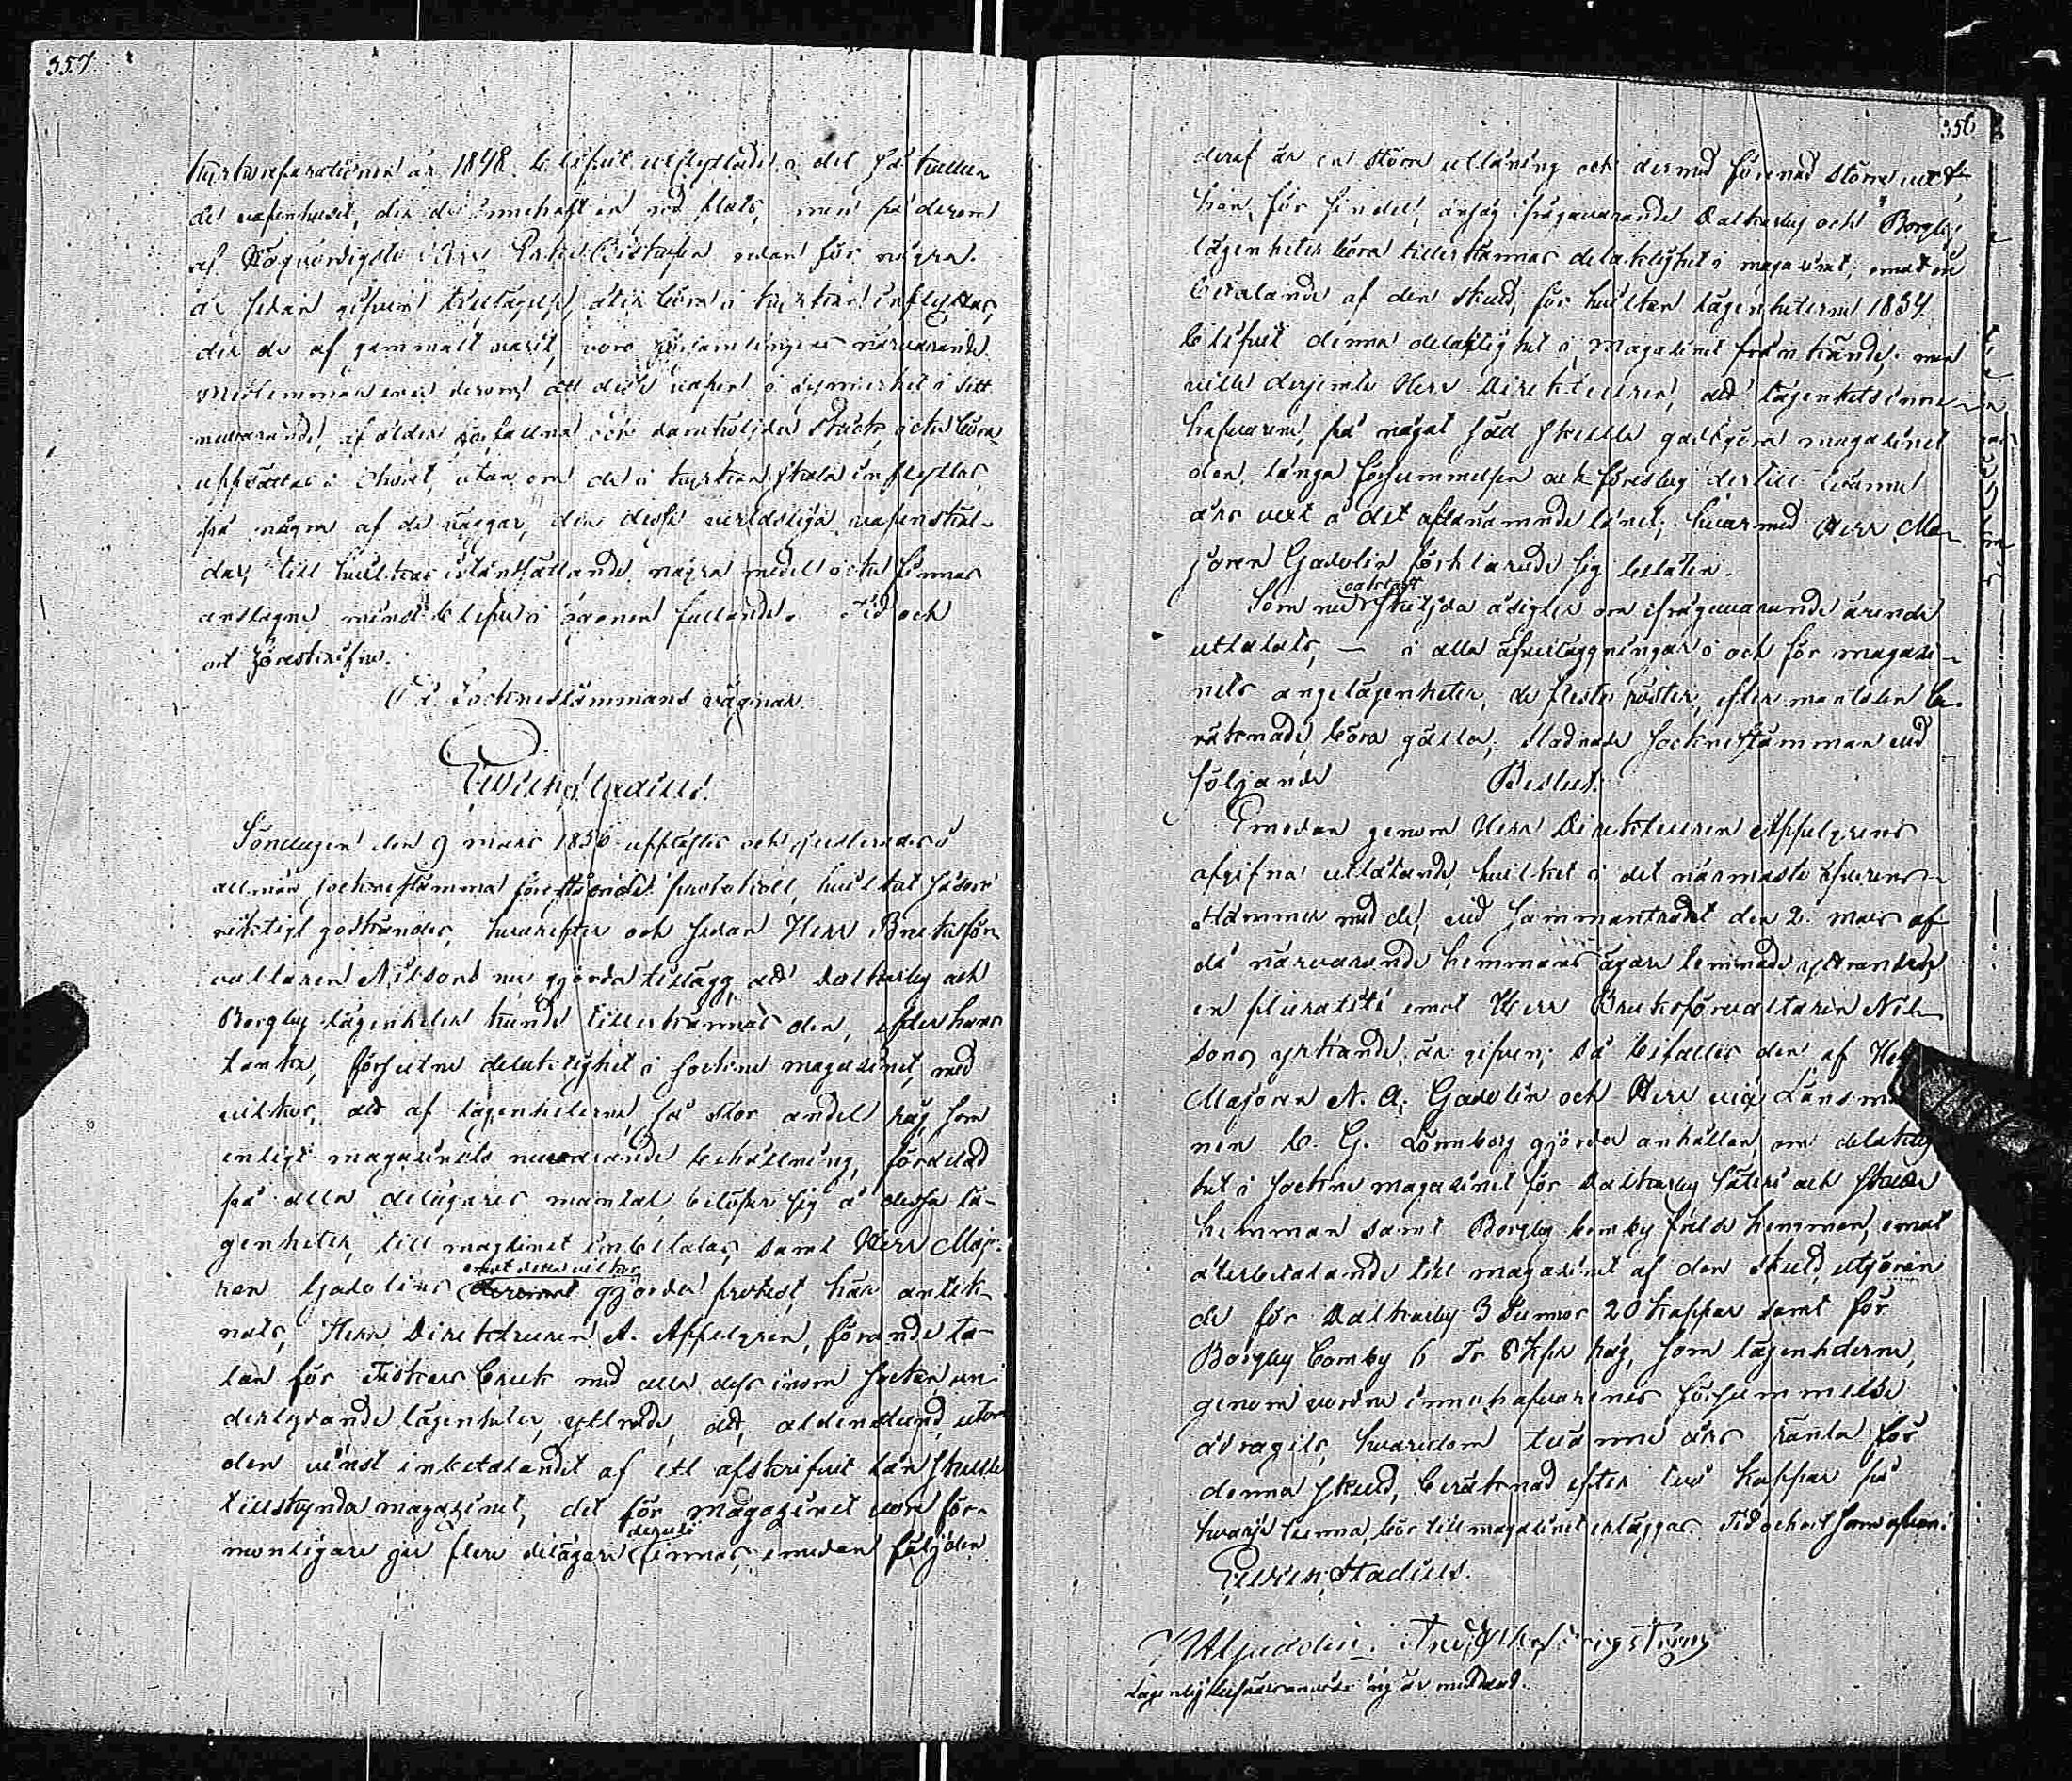 357.
kyrkoreparationen år 1848. blifvit utflyttade i det så kallade
vapenhuset, der de innehaft en god plats, men på derom
af Högvördigste Herr Erkebiskopen redan för några
år sedan gifven tillsägelse, åter böra i kyrkan inflyttas,
der de af gammalt varit, voro församlingens närvarande
medlemmar ense derom att dessa vapen i synnerhet i sitt
nuvarande, af ålder förfallna och vanställda skick, icke böra
uppsättas i choret, utan om de i kyrkan skola inflyttas,
på några af de väggar, der dessa verldsliga vapensköl-
dar, till hvilkas iståndsättande några medel icke finnas
anslagne, minst blefve i ögonen fallande. Tid och
ort föreskrifne.
På Socknestämmans vägnar.
Edvin Stadius.
Söndagen den 9 mars 1856 upplästes och justerades i
allmän socknestämma förestående protokoll, hvilket såsom
riktigt godkändes, hvarefter och sedan Herr Bruksför-
valtaren Nilsons nu gjorda tillägg, att Dalkarby och
Borgby lägenheter kunde tillerkännas den, efter hans
tanke, förfutne delaktighet i sockne magasinet, med
vilkor, att af lägenheterna, så stor andel råg, som
enligt magasinets nuvarande behållning, fördelad
på alla delägares mantal, belöper sig å dessa lä-
genheter, till magasinet inbetalas, samt Herr Majo-
ren Gadolins emot detta vilkor gjorda protest, här antek-
nats, Herr Direkteuren A. Appelgren, förande ta-
lan för Fiskars bruk med alla dess inom socken un-
derlydande lägenheter, yttrade, att, aldenstund, utom
den vinst inbetalandet af ett afskrifvit lån skulle
tillskynda magasinet, det för magasinet vore för-
monligare ju flere delägare deruti finnas, emedan följden
356
deraf är en större utlåning och dermed förenad större vext,
han, för sin del, ansåg ifrågavarande Dalkarby och Borgby
lägenheter böra tillerkännas delaktighet i magasinet, emot
betalande af den skuld, för hvilken lägenheterne 1834
blifvit denna delaktighet i magasinet frånkände; men
ville derjemte Herr Direkteuren, att lägenhetsinne-
hafvarene, på något sätt skulle godtgöra magasinet
den långa försummelsen och föreslog dertill tvänne
års vext å det afskrifne lånet; hvarmed Herr Ma-
joren Gadolin förklarade sig belåten.
Som nu särskilta åsigter om ifrågavarande ärende
uttalats, — i alla öfverläggningar i och för magasi-
nets angelägenheter, de fleste röster, efter mantalen be-
räknade, böra gälla, stadnade sockneståmman vid
följande Beslut:
Emedan genom Herr Direkteuren Appelgrens
afgifna utlåtande, hvilket i det närmaste öfverens-
stämmer med de, vid sammanträdet den 2. mars af
då närvarande hemmans ägare lemnade yttranden,
en pluralité emot Herr Bruksförvaltaren Nil-
sons yrkande, är gifven; så bifalles den af Herr
Majoren N. A. Gadolin och Herr vice Länsman-
nen C. G. Lönnborg gjorda anhållan, om delaktig-
het i sockne magasinet för Dalkarby säteri och skatte
hemman samt Borgby Comby frälse hemman, emot
återbetalande till magasinet af den skuld, utgöran-
de för Dalkarby 3 Tunnor 20 kappar samt för
Borgby Comby 6 Tr 8 Kpr råg, som lägenheterne,
genom vordne innehafvarenes försummelse
ådragits, hvarutom tvänne års ränta för
denna skuld, beräknad efter två kappar på
hvarje tunna, bör till magasinet erläggas. Tid och ort som ofvan:
Edvin Stadius.